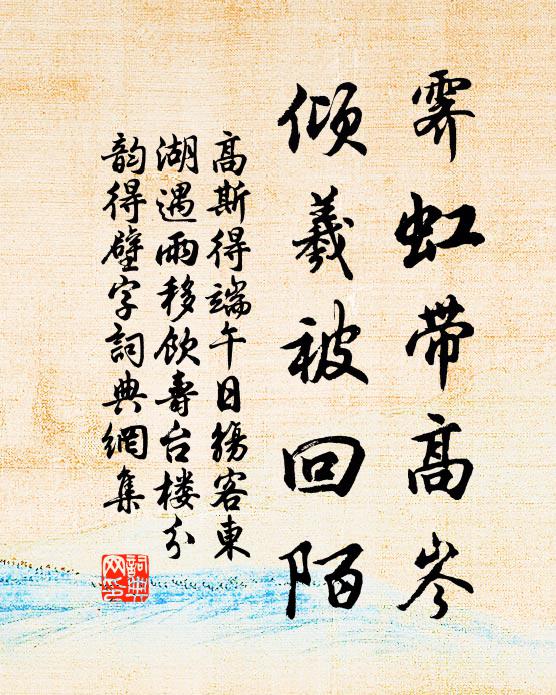 霁虹带高岑
倾羲被回陌
高斯得端午日觞客東
湖遇雨移饮壽台楼分
韵得壁字詞典網集
詞典网集